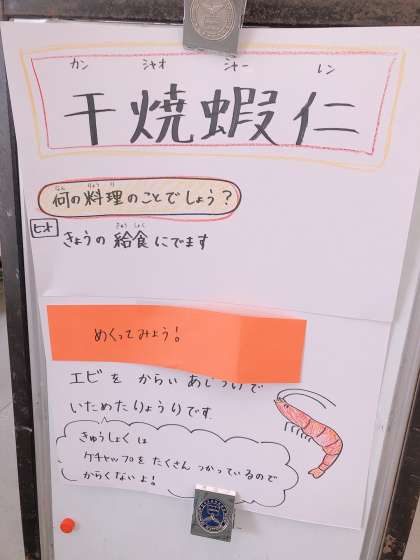 カン シャオ シャー レン
干焼蝦仁
なん りょう り
何の料理のことでしょう？
きゅう しょく
ヒント きょうの給食にでます
めくってみよう！
エビを からい あじつけで
いためたりょうりです.
きゅうしょくは
ケチャップを たくさん つかっているので
からくないよ！